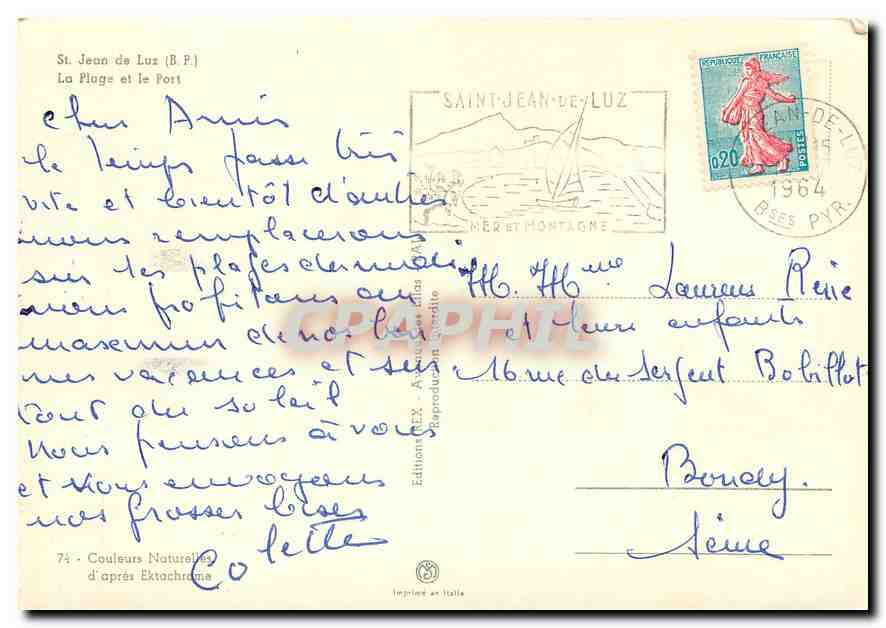 St. Jean de Luz (B. P.)
La Plage et le Port
Chers Amis
le temps passe très
vite et bientôt d'autres
nous remplacerons
sur les plages
nous profitons au
maximum de nos bon
nes vacances et sur
tout du soleil
Nous pensons à vous
et vous envoyons
nos grosses bises
Colette
74 - Couleurs Naturelles
d'après Ektachrome
Editions REX - Avenue des Lilas
Reproduction interdite
Imprimé en Italie
SAINT-JEAN-DE-LUZ
MER ET MONTAGNE
REPUBLIQUE FRANÇAISE
0,20
POSTES
AN-DE-LUZ
15
1964
Bses PYR.
M. Mme Laurens
et leurs enfants
16 rue du Sergent Bobillot
Bondy.
Seine
CPAPHIL